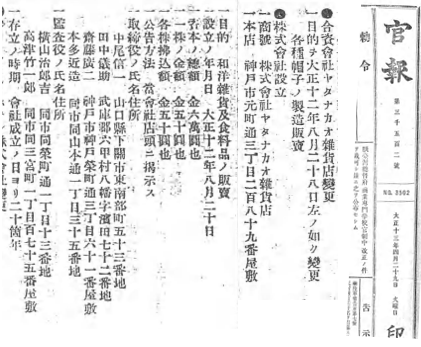 官報
第三千五百二號
NO. 3502
大正十三年四月二十九日 火曜日
印
勅令
告示
●合資會社ヤタナカオ雜貨店變更
一目的ヲ大正十二年八月二十八日左ノ如ク變更
各種帽子ノ製造販賣
●株式會社設立
一商號 株式會社ヤタナカオ雜貨店
一本店 神戸市元町通三丁目二百八十九番屋敷
目的 和洋雜貨及食料品ノ販賣
設立ノ年月日 大正十二年八月二十日
一資本ノ總額 金六萬圓也
一一株ノ金額 金五十圓也
一各株拂込額 金五十圓也
一公告方法 當會社店頭ニ揭示ス
一取締役ノ氏名住所
中尾信一 山口縣下關市東南部町五十三番地
田中儀助 武庫郡六甲村八幡字濱田七十二番地
齋藤廣二 神戸市神戸榮町通三丁目六十一番屋敷
本多近造 同市同山本通一丁目三十五番地
一監査役ノ氏名住所
横山治郎吉 同市同榮町通一丁目十三番地
高津竹一郎 同市同三宮町一丁目百七十五番屋敷
一存立ノ時期 會社成立ノ日ヨリ二十箇年